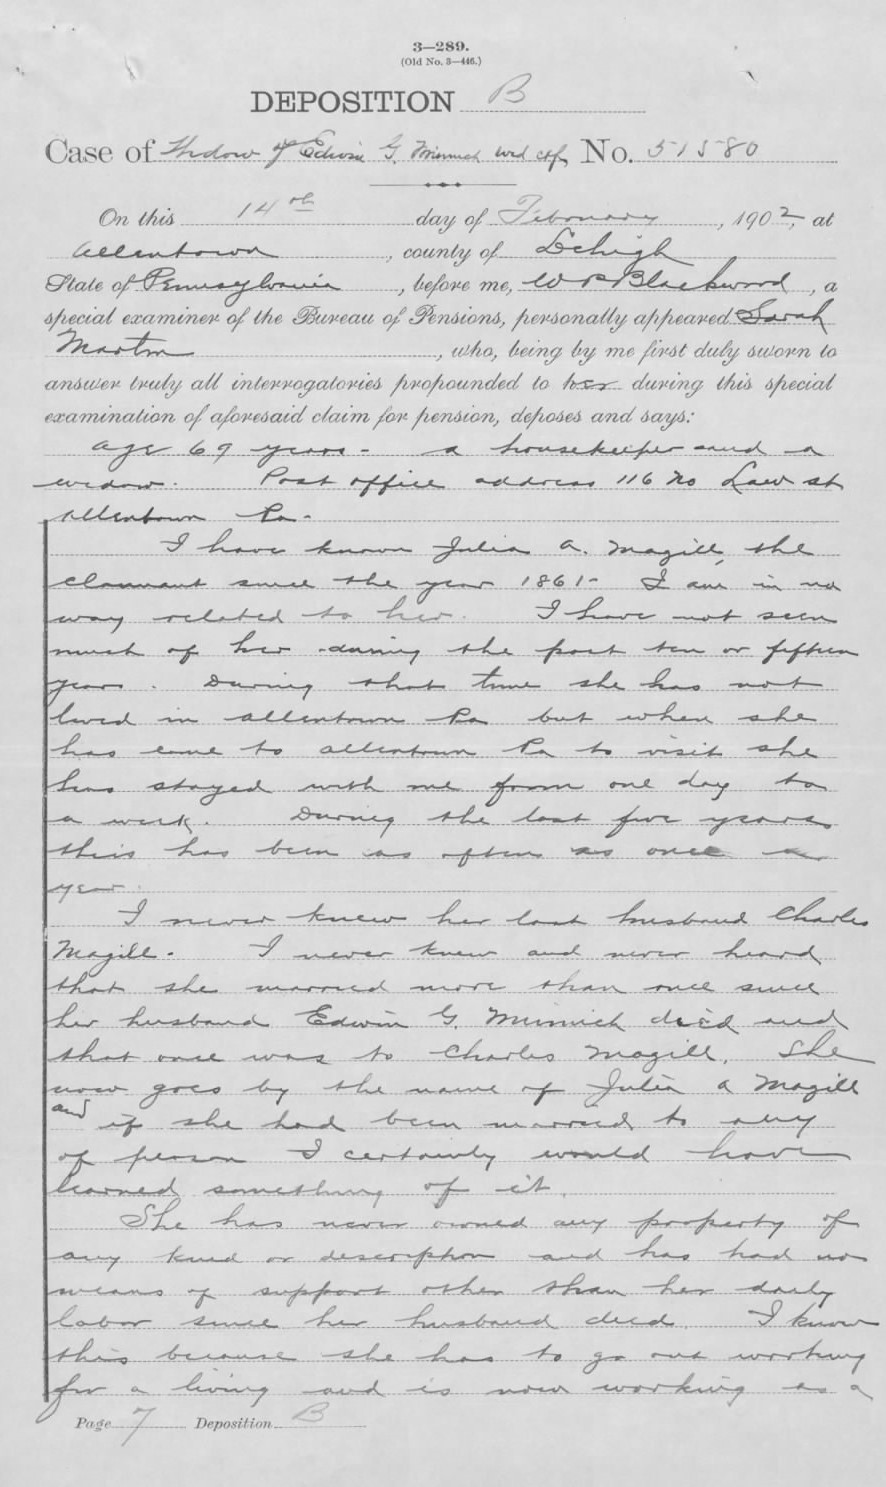 3—289.
(Old No. 3—446.)
DEPOSITION B
Case of Widow of Edwin G. Minnich wid ctf, No. 51580
On this 14th day of February, 1902, at
Allentown, county of Lehigh
State of Pennsylvania, before me, W P Blackwood, a
special examiner of the Bureau of Pensions, personally appeared Sarah
Martin, who, being by me first duly sworn to
answer truly all interrogatories propounded to her during this special
examination of aforesaid claim for pension, deposes and says:
age 69 years - a housekeeper and a
widow. Post office address 116 No Law st
Allentown Pa.
I have known Julia A. Magill, the
claimant since the year 1861- I am in no
way related to her. I have not seen
much of her during the past ten or fifteen
years. During that time she has not
lived in Allentown Pa but when she
has come to Allentown Pa to visit she
has stayed with me from one day to
a week. During the last five years
this has been as often as once a
year.
I never knew her last husband Charles
Magill. I never knew and never heard
that she married more than once since
her husband Edwin G. Minnich died and
that once was to Charles Magill. She
now goes by the name of Julia A Magill
and if she had been married to any
of person I certainly would have
learned something of it.
She has never owned any property of
any kind or description and has had no
means of support other than her daily
labor since her husband died. I know
this because she has to go out working
for a living and is now working as a
Page 7 Deposition B